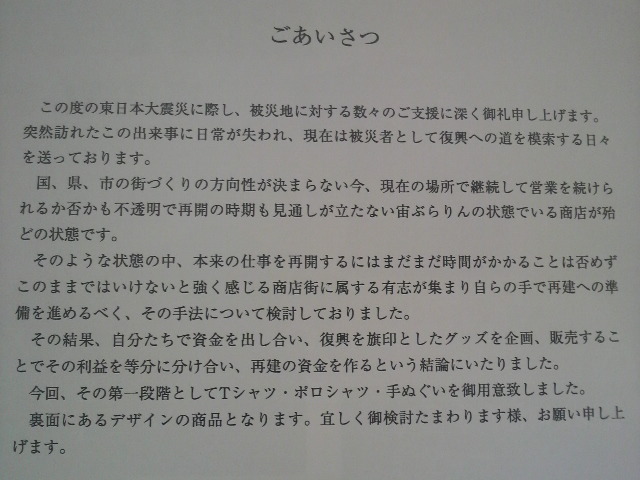 ごあいさつ
この度の東日本大震災に際し、被災地に対する数々のご支援に深く御礼申し上げます。
突然訪れたこの出来事に日常が失われ、現在は被災者として復興への道を模索する日々
を送っております。
国、県、市の街づくりの方向性が決まらない今、現在の場所で継続して営業を続けら
れるか否かも不透明で再開の時期も見通しが立たない宙ぶらりんの状態でいる商店が殆
どの状態です。
そのような状態の中、本来の仕事を再開するにはまだまだ時間がかかることは否めず
このままではいけないと強く感じる商店街に属する有志が集まり自らの手で再建への準
備を進めるべく、その手法について検討しておりました。
その結果、自分たちで資金を出し合い、復興を旗印としたグッズを企画、販売するこ
とでその利益を等分に分け合い、再建の資金を作るという結論にいたりました。
今回、その第一段階としてTシャツ・ポロシャツ・手ぬぐいを御用意致しました。
裏面にあるデザインの商品となります。宜しく御検討たまわります様、お願い申し上
げます。